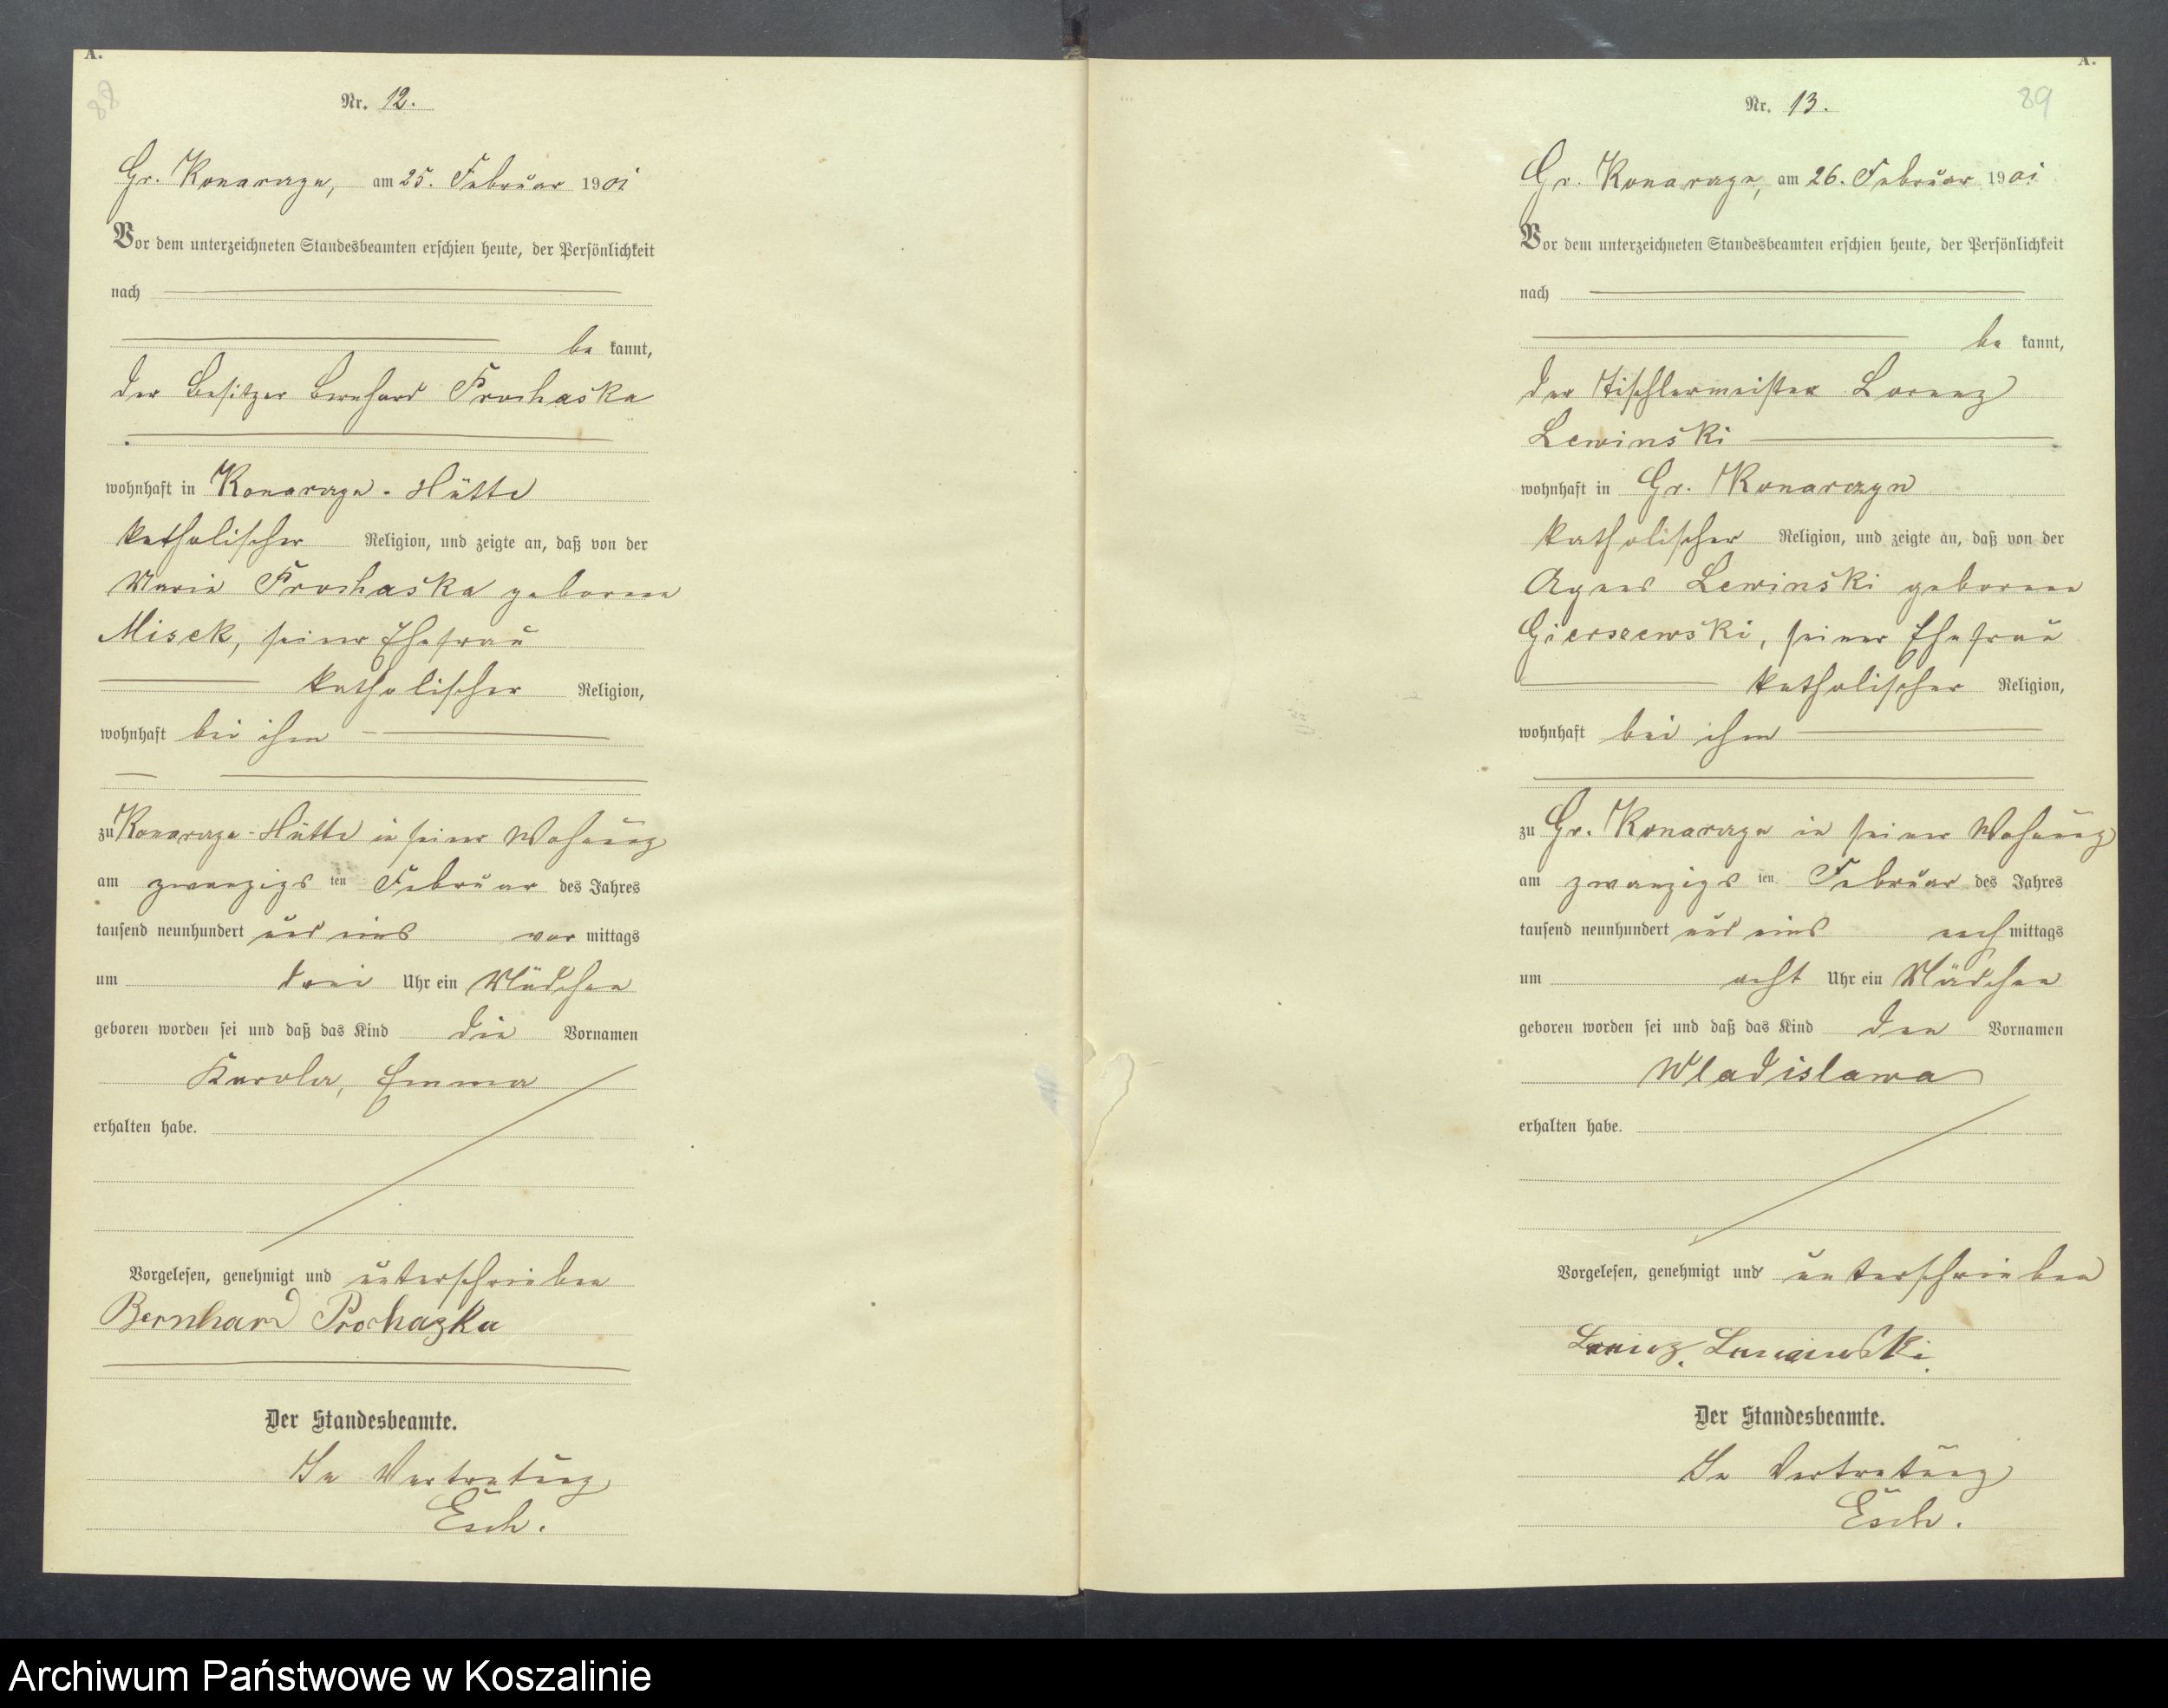 A.
88
Nr. 12.
Gr. Konarczyn, am 25. Februar 1901
Vor dem unterzeichneten Standesbeamten erschien heute, der Persönlichkeit
nach
be kannt,
der Besitzer Bernhard Prochaska
wohnhaft in Konarczyn-Hütte
katholischer Religion, und zeigte an, daß von der
Maria Prochaska geborene
Misek, seiner Ehefrau
katholischer Religion,
wohnhaft bei ihm
zu Konarczyn-Hütte in seiner Wohnung
am zwanzigs ten Februar des Jahres
tausend neunhundert und eins vor mittags
um drei Uhr ein Mädchen
geboren worden sei und daß das Kind die Vornamen
Karola, Emma
erhalten habe.
Vorgelesen, genehmigt und unterschrieben
Bernhard Prochazka
Der Standesbeamte.
In Vertretung
Esch.
A.
89
Nr. 13.
Gr. Konarczyn, am 26. Februar 1901
Vor dem unterzeichneten Standesbeamten erschien heute, der Persönlichkeit
nach
be kannt,
der Tischlermeister Lorenz
Lewinski
wohnhaft in Gr. Konarczyn
katholischer Religion, und zeigte an, daß von der
Agnes Lewinski geborene
Gierszewski, seiner Ehefrau
katholischer Religion,
wohnhaft bei ihm
zu Gr. Konarczyn in seiner Wohnung
am zwanzigs ten Februar des Jahres
tausend neunhundert und eins nach mittags
um acht Uhr ein Mädchen
geboren worden sei und daß das Kind den Vornamen
Wladislawa
erhalten habe.
Vorgelesen, genehmigt und unterschrieben
Der Standesbeamte.
In Vertretung
Esch.
Archiwum Państwowe w Koszalinie